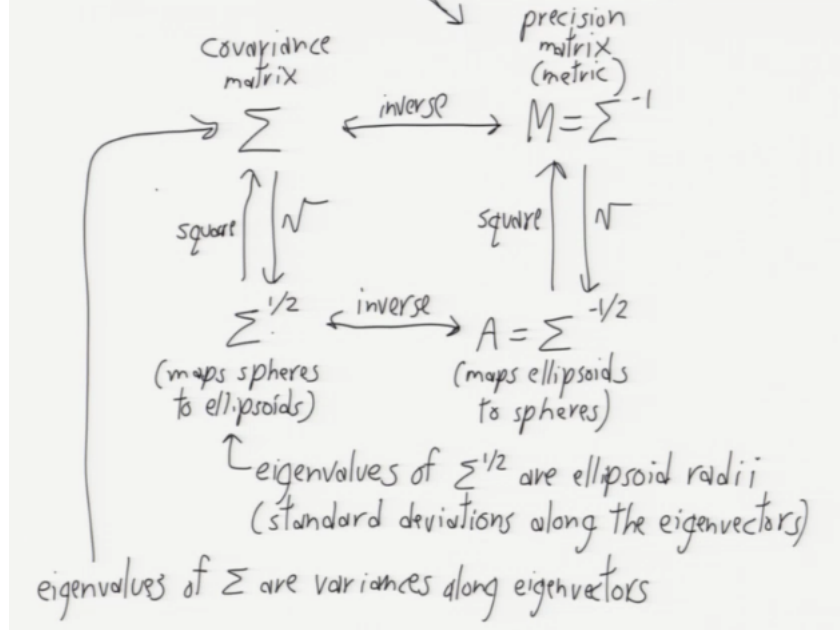 covariance
matrix
precision
matrix
(metric)
Σ
inverse
M = Σ⁻¹
square
√
square
√
Σ^1/2
inverse
A = Σ^-1/2
(maps spheres
to ellipsoids)
(maps ellipsoids
to spheres)
eigenvalues of Σ^1/2 are ellipsoid radii
(standard deviations along the eigenvectors)
eigenvalues of Σ are variances along eigenvectors